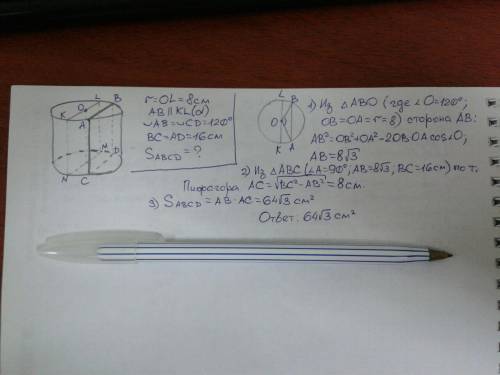 L B
O
K
A
M
D
N C
r=OL=8см
AB∥KL(d)
◡AB=◡CD=120°
BC=AD=16см
S_ABCD=?
L B
O
K A
1) Из △ABO (где ∠O=120°,
OB=OA=r=8) сторона AB:
AB²=OB²+OA²-2OB·OA cos∠O,
AB=8√3
2) Из △ABC (∠A=90°, AB=8√3, BC=16см) по т.
Пифагора AC=√BC²-AB²=8см.
3) S_ABCD=AB·AC=64√3 см²
Ответ: 64√3 см²